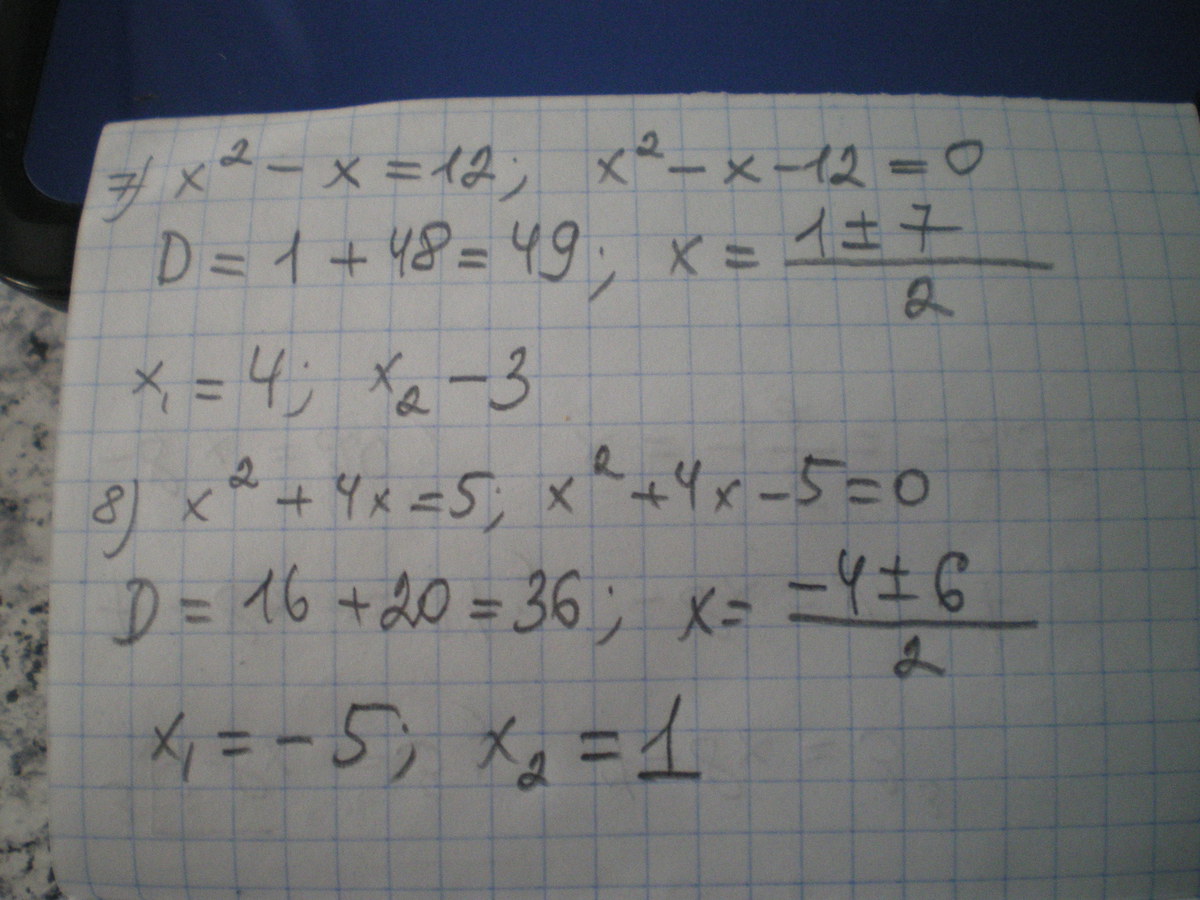 7) x² - x = 12; x² - x - 12 = 0
D = 1 + 48 = 49; x = (1 ± 7)/2
x₁ = 4; x₂ - 3
8) x² + 4x = 5; x² + 4x - 5 = 0
D = 16 + 20 = 36; x = (-4 ± 6)/2
x₁ = -5; x₂ = 1